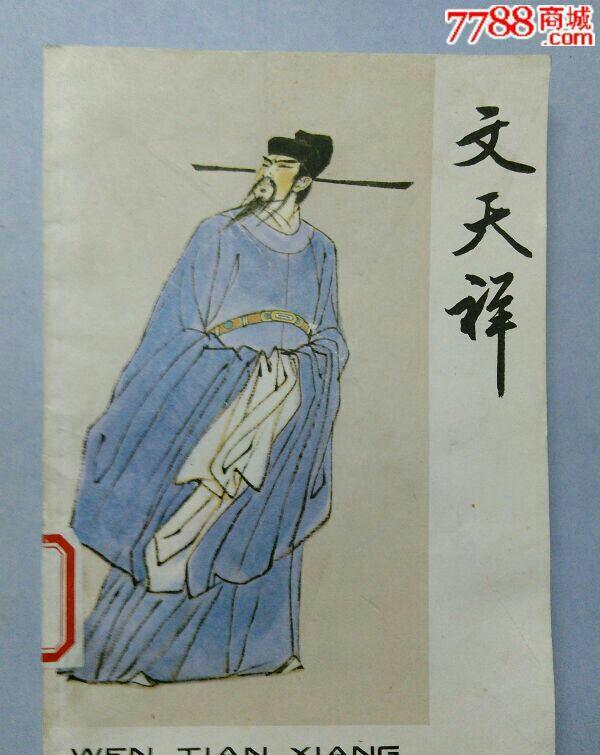 7788商城
.com
文天祥
WEN TIAN XIANG